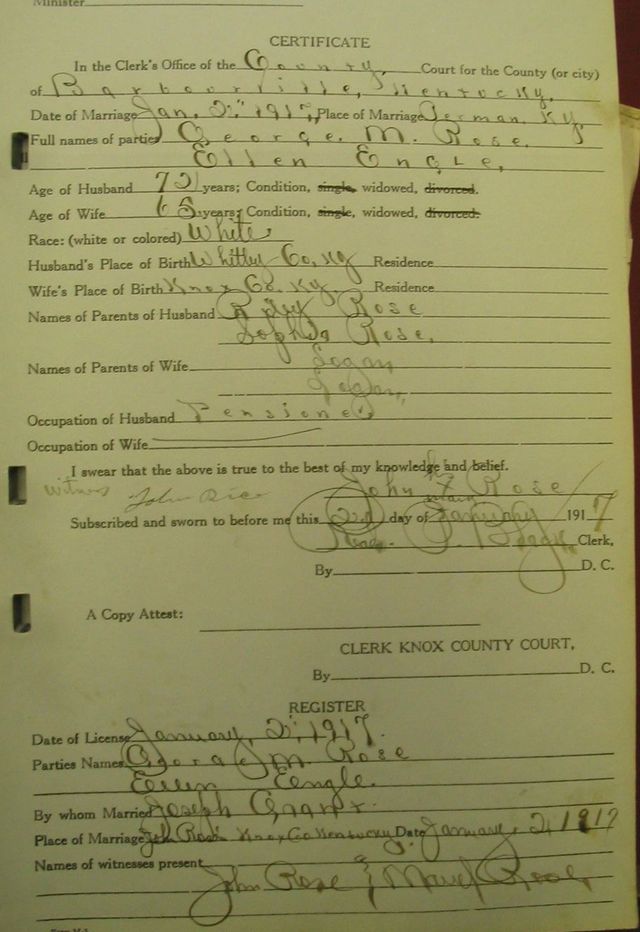 Minister
CERTIFICATE
In the Clerk's Office of the County, Court for the County (or city)
of Barbourville, Kentucky,
Date of Marriage Jan, 2, 1917, Place of Marriage German, Ky,
Full names of parties George. M. Rose.
Ellen Engle,
Age of Husband 72 years; Condition, single, widowed, divorced.
Age of Wife 65 years; Condition, single, widowed, divorced.
Race: (white or colored) White,
Husband's Place of Birth Whitley Co, Ky Residence
Wife's Place of Birth Knox Co. Ky. Residence
Names of Parents of Husband Riley Rose
Sophia Rose,
Names of Parents of Wife Logan
Logan,
Occupation of Husband Pensioner,
Occupation of Wife
I swear that the above is true to the best of my knowledge and belief.
Witness John John X Rose
mark
Subscribed and sworn to before me this 2d day of January 1917
Clerk,
By D. C.
A Copy Attest:
CLERK KNOX COUNTY COURT,
By D. C.
REGISTER
Date of License January, 2, 1917.
Parties Names George M Rose
Ellen Eengle.
By whom Married Joseph Grant.
Place of Marriage Knox Co Kentucky Date January, 2, 1917
Names of witnesses present
John Rose & Rose,